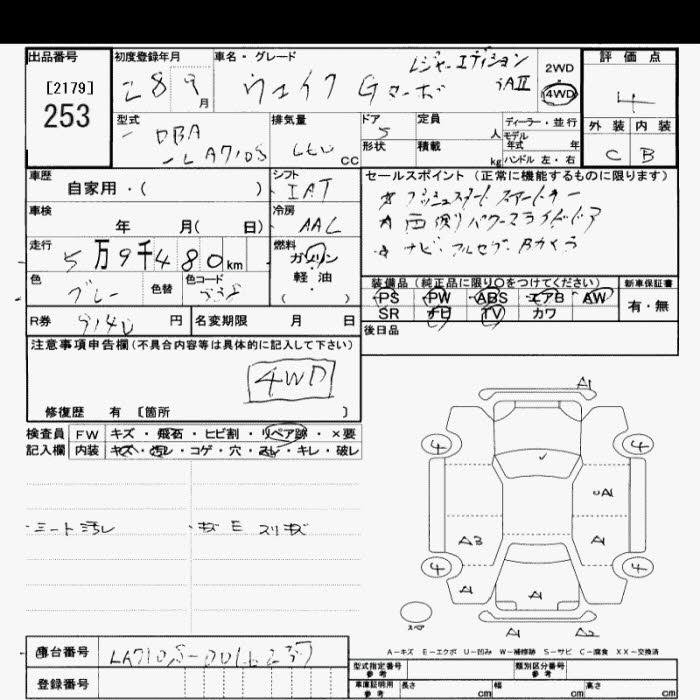 出品番号
[2179]
253
初度登録年月
28 9月
車名・グレード
ウェイク Gターボ
レジャーエディション
SAⅡ
2WD
・
4WD
評価点
4
外装 内装
C B
型式
DBA
-LA710S
排気量
cc
ドア
5
形状
定員
人
積載
kg
ディーラー・並行
モデル
年式 年
ハンドル 左・右
車歴
自家用・( )
シフト
IAT
車検
年 月( 日)
冷房
AAC
走行
5万9千480km
燃料
ガソリン
・
軽油
( )
色
グレー
色替
色コード
R券
9140円
名変期限 月 日
セールスポイント(正常に機能するものに限ります)
プッシュスタート スマートキー
両側パワースライドドア
ナビ・フルセグ・Bカメラ
装備品(純正品に限り○をつけてください)
PS PW ABS エアB AW
SR ナビ TV カワ
新車保証書
有・無
後日品
注意事項申告欄(不具合内容等は具体的に記入して下さい)
4WD
修復歴 有 〔箇所 〕
検査員 FW キズ・飛石・ヒビ割・リペア跡・×要
記入欄 内装 キズ・汚レ・コゲ・穴・スレ・キレ・破レ
シート汚レ
・キズ E スリキズ
A1
4 4
A1
A3 A1
4 4
A A A1
スペア
A1 A2
A−キズ E−エクボ U−凹み W−補修跡 S−サビ C−腐食 XX−交換済
車台番号
登録番号
型式指定番号
参考
類別区分番号
参考
車庫証明用
参考
長さ cm 幅 cm 高さ cm